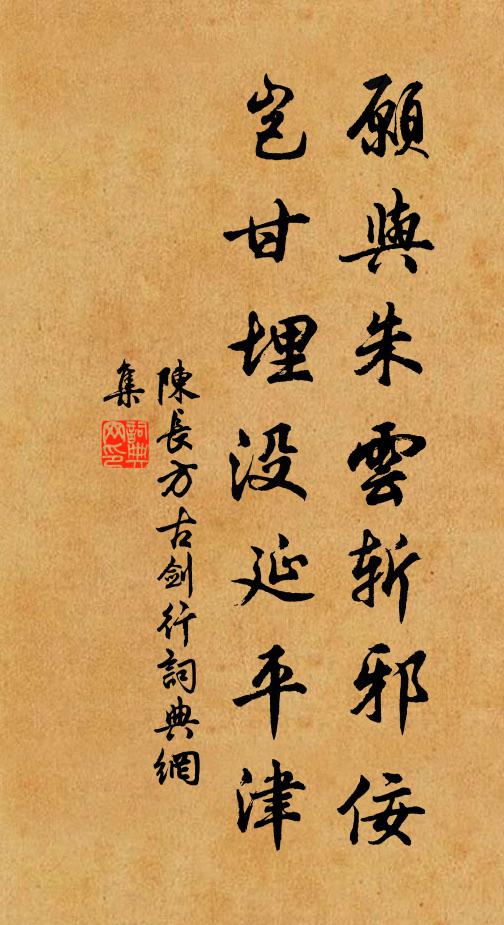 願與朱雲斬邪佞
豈甘埋没延平津
陳長方古劍行詞典網
集
詞典
网印